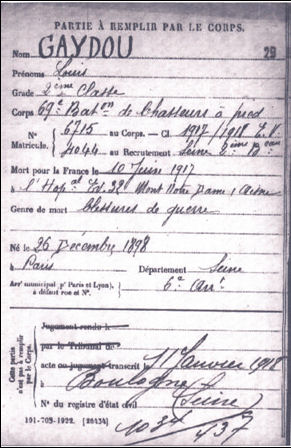 PARTIE À REMPLIR PAR LE CORPS.
Nom GAYDOU 29
Prénoms Louis
Grade 2ème Classe
Corps 69e Bat on de Chasseurs à pied
N° 6715 au Corps. — Cl. 1917/1918 E.V.
Matricule. 4044 au Recrutement Seine 2ème Beau
Mort pour la France le 10 Juin 1917
à l'Hopal Ed. 226 Mont Notre Dame, Aisne
Genre de mort blessures de guerre
Né le 26 Décembre 1898
à Paris Département Seine
Arrt municipal (pr Paris et Lyon), 6e Arrt
à défaut rue et N°.
Cette partie n'est pas à remplir par le Corps.
Jugement rendu le
par le Tribunal de
acte ou jugement transcrit le 11 Janvier 1918
à Boulogne (Seine)
N° du registre d'état civil 1034/437
191-708-1922. [26434]